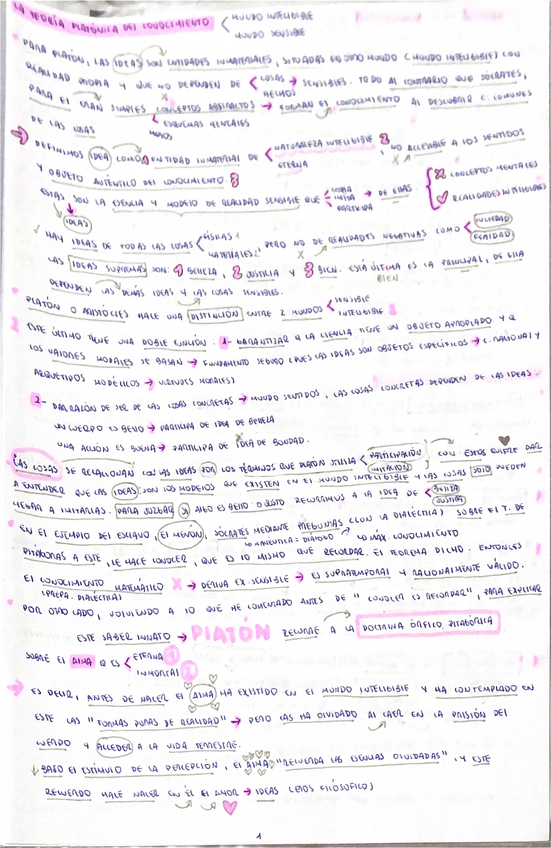 LA TEORÍA PLATÓNICA DEL CONOCIMIENTO < MUNDO INTELIGIBLE
MUNDO SENSIBLE
PARA PLATÓN, LAS IDEAS SON ENTIDADES INMATERIALES, SITUADAS EN OTRO MUNDO (MUNDO INTELIGIBLE) CON
REALIDAD PROPIA Y QUE NO DEPENDEN DE < COSAS → SENSIBLES. TODO AL CONTRARIO QUE SÓCRATES,
HECHOS
PARA EL ERAN SIMPLES CONCEPTOS ABSTRACTOS → FORMAN EL CONOCIMIENTO AL DESCUBRIR C. COMUNES
ESQUEMAS MENTALES
DE LAS COSAS
→ DEFINIMOS IDEA COMO ENTIDAD INMATERIAL DE < NATURALEZA INTELIGIBLE NO ACCESIBLE A LOS SENTIDOS
ETERNA
Y OBJETO AUTÉNTICO DEL CONOCIMIENTO. CONCEPTOS MENTALES
ELLAS SON LA ESENCIA Y MODELO DE REALIDAD SENSIBLE QUE < COPIA → DE ELLAS REALIDADES INTELIGIBLES
IMITA
PARTICIPA
IDEAS
HAY IDEAS DE TODAS LAS COSAS < FÍSICAS, PERO NO DE REALIDADES NEGATIVAS COMO < SUCIEDAD
MATERIALES FEALDAD
LAS IDEAS SUPREMAS SON: BELLEZA, JUSTICIA Y BIEN. ESTA ÚLTIMA ES LA PRINCIPAL, DE ELLA
BIEN
DEPENDEN LAS DEMÁS IDEAS Y LAS COSAS SENSIBLES.
PLATÓN O ARISTÓCLES HACE UNA DISTINCIÓN ENTRE 2 MUNDOS < SENSIBLE
INTELIGIBLE
ESTE ÚLTIMO TIENE UNA DOBLE FUNCIÓN: 1- GARANTIZAR Q LA CIENCIA TIENE UN OBJETO APROPIADO Y Q
LOS VALORES MORALES SE BASAN → FUNDAMENTO SEGURO (PUES LAS IDEAS SON OBJETOS ESPECÍFICOS → C. RACIONAL) Y
ARQUETIPOS MODÉLICOS → VIRTUDES MORALES)
2- DAR RAZÓN DE SER DE LAS COSAS CONCRETAS → MUNDO SENTIDOS, LAS COSAS CONCRETAS DEPENDEN DE LAS IDEAS.
UN CUERPO ES BELLO → PARTICIPA DE IDEA DE BELLEZA
UNA ACCIÓN ES BUENA → PARTICIPA DE IDEA DE BONDAD.
LAS COSAS SE RELACIONAN CON LAS IDEAS POR LOS TÉRMINOS QUE PLATÓN UTILIZA < PARTICIPACIÓN, CON ESTOS QUIERE DAR
IMITACIÓN
A ENTENDER QUE LAS IDEAS SON LOS MODELOS QUE EXISTEN EN EL MUNDO INTELIGIBLE Y LAS COSAS SOLO PUEDEN
LLEGAR A IMITARLAS. PARA JUZGAR SI ALGO ES BELLO O JUSTO RECURRIMOS A LA IDEA DE < BELLEZA
JUSTICIA
EN EL EJEMPLO DEL ESCLAVO, EL MENÓN, SÓCRATES MEDIANTE PREGUNTAS (CON LA DIALÉCTICA) SOBRE EL T. DE
DIÁLOGO → MAX. CONOCIMIENTO
PITÁGORAS A ESTE, LE HACE CONOCER, QUE ES LO MISMO QUE RECORDAR. EL TEOREMA DICHO. ENTONCES
EL CONOCIMIENTO MATEMÁTICO X → DERIVA EX. SENSIBLE → ES SUPRATEMPORAL Y RACIONALMENTE VÁLIDO.
(PREPA. DIALÉCTICA)
POR OTRO LADO, VOLVIENDO A LO QUE HE COMENTADO ANTES DE "CONOCER ES RECORDAR", PARA EXPLICAR
ESTE SABER INNATO → PLATÓN RECURRE A LA DOCTRINA ÓRFICO PITAGÓRICA
SOBRE EL ALMA Q ES < ETERNA
INMORTAL
→ ES DECIR, ANTES DE NACER EL ALMA HA EXISTIDO EN EL MUNDO INTELIGIBLE Y HA CONTEMPLADO EN
ESTE LAS "FORMAS PURAS DE REALIDAD" → PERO LAS HA OLVIDADO AL CAER EN LA PRISIÓN DEL
CUERPO Y ACCEDER A LA VIDA TERRESTRE.
↓ BAJO EL ESTÍMULO DE LA PERCEPCIÓN, EL ALMA "RECUERDA LAS ESENCIAS OLVIDADAS". Y ESTE
RECUERDO HACE NACER EN ÉL EL AMOR → IDEAS (EROS FILOSÓFICO)
1